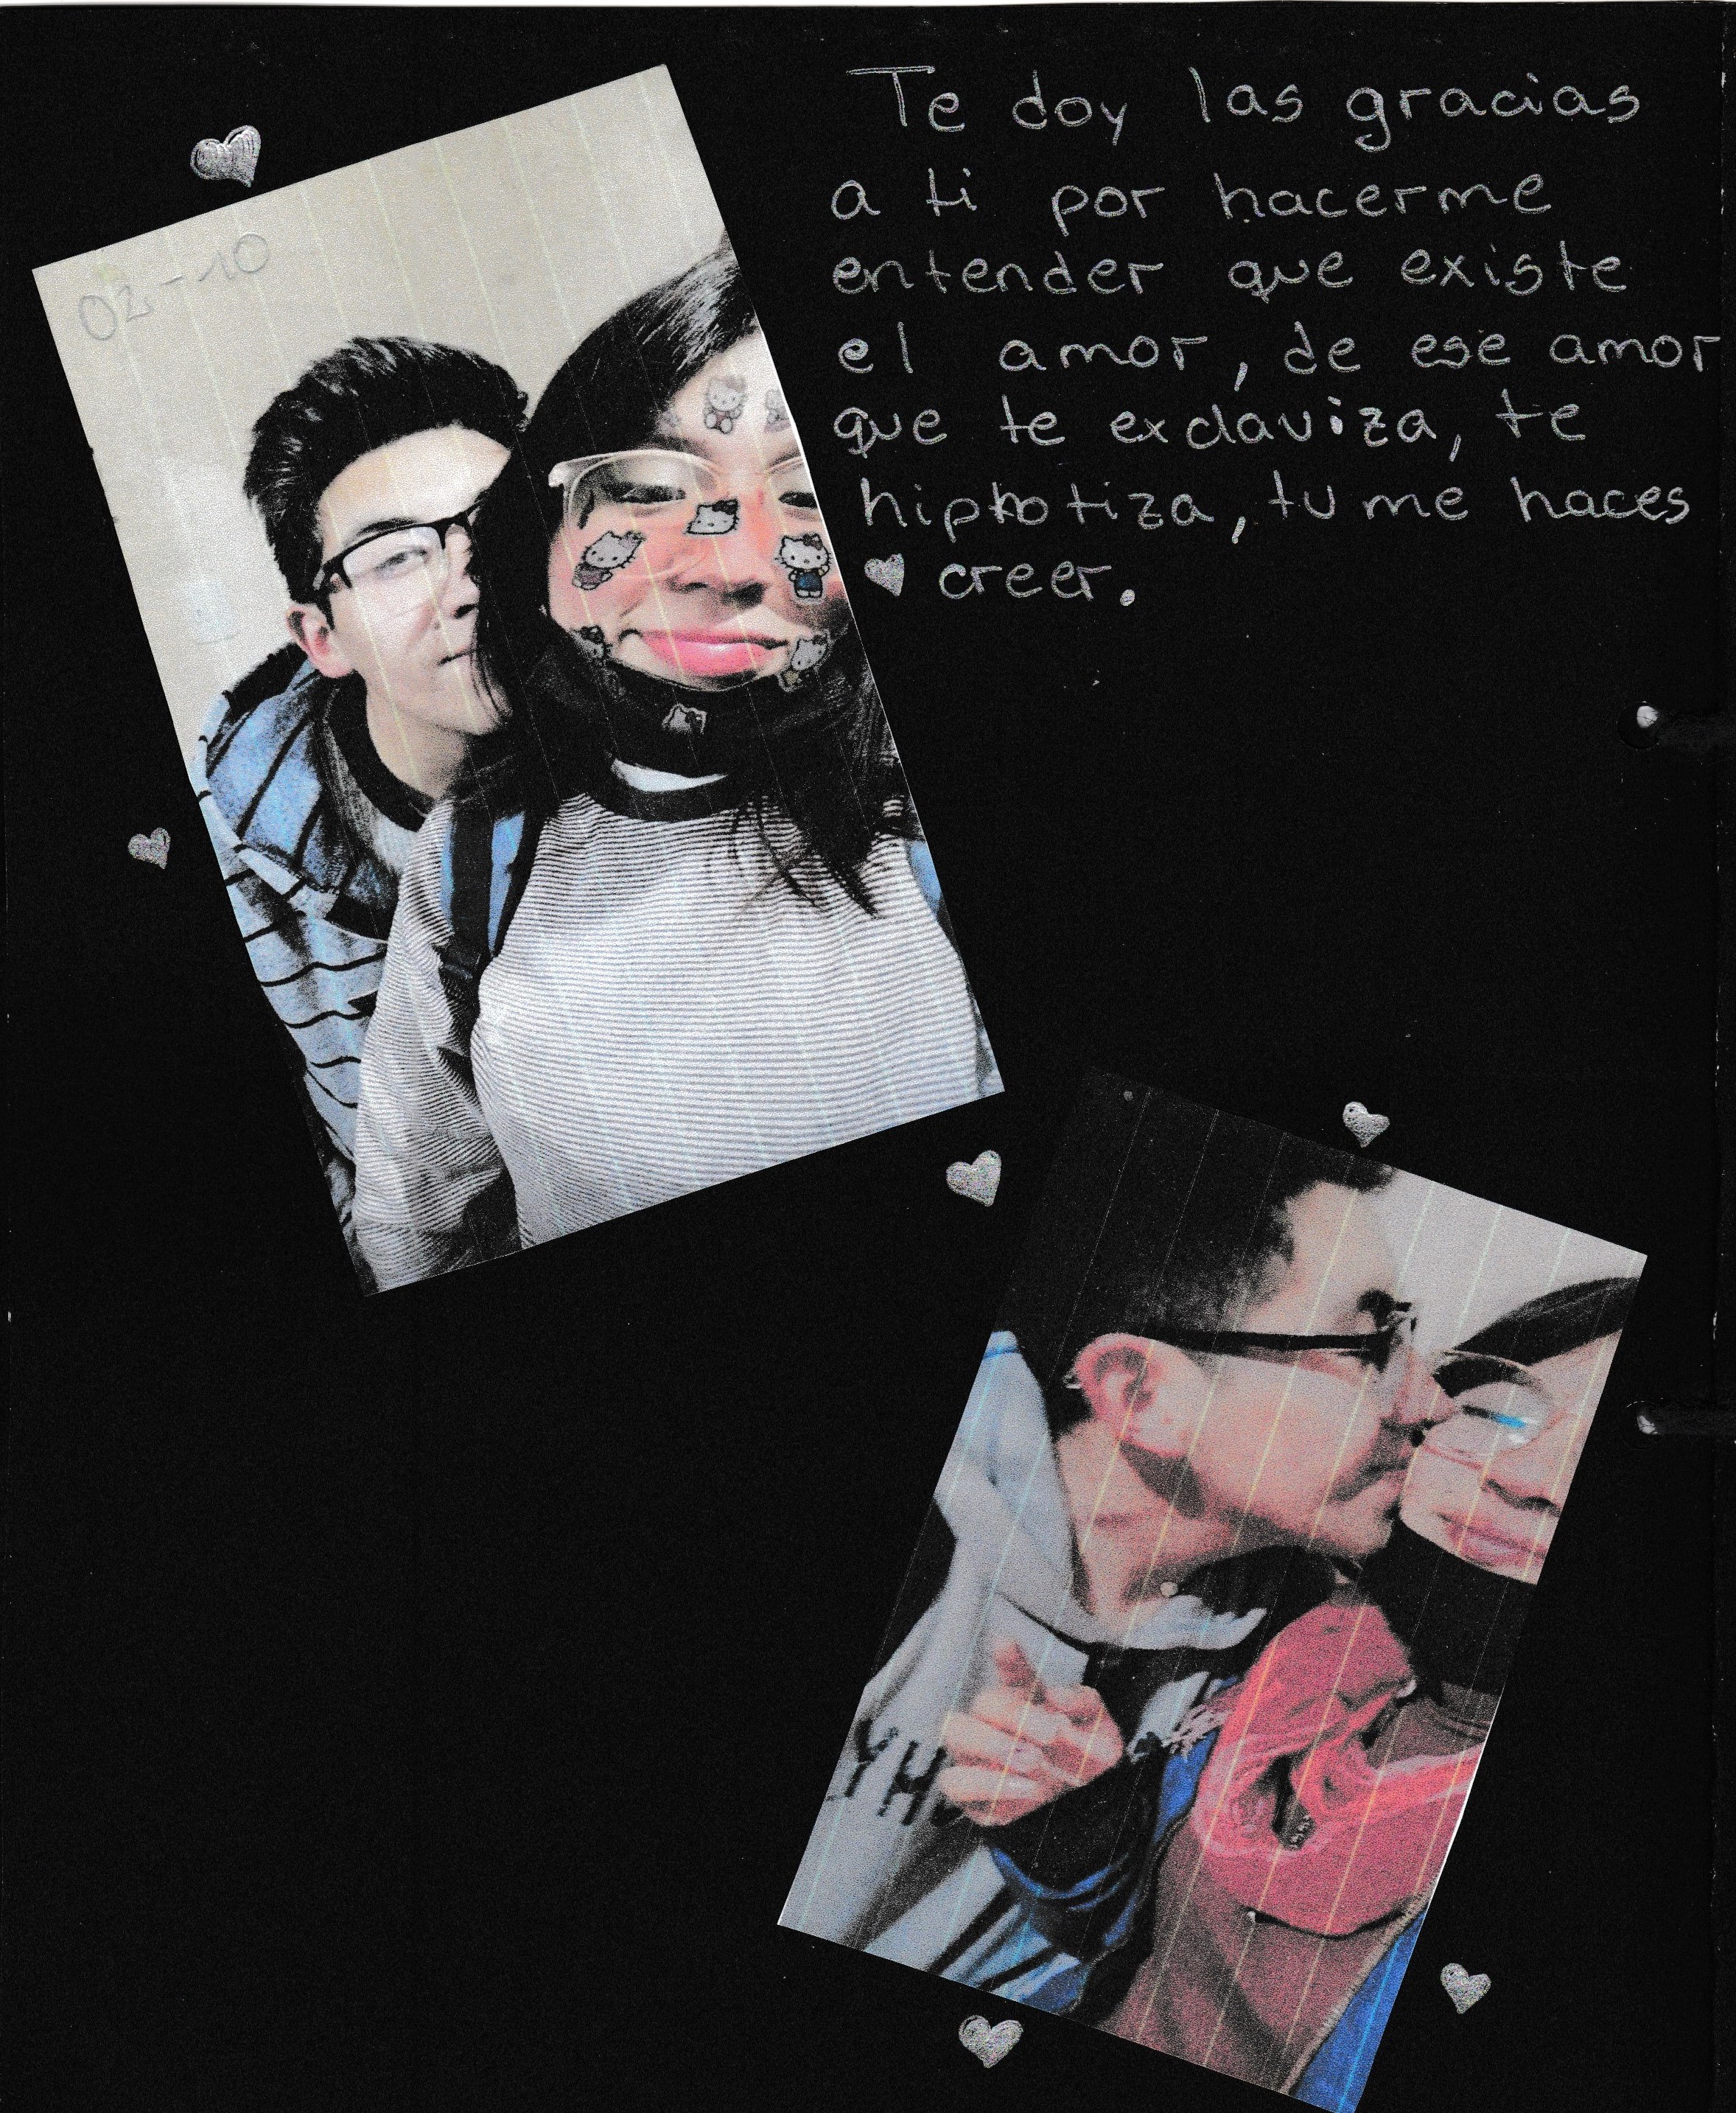 Te doy las gracias
a ti por hacerme
entender que existe
el amor, de ese amor
que te exclaviza, te
hipnotiza, tu me haces
creer.
02-10
YH